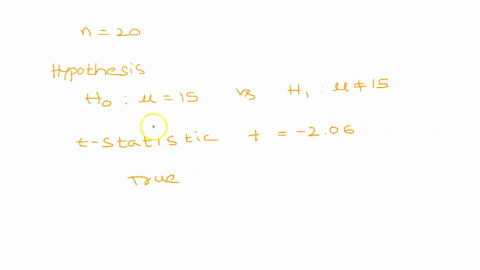 n = 20
Hypothesis
H0 : μ = 15 vs H1 : μ ≠ 15
t-statistic t = -2.06
True